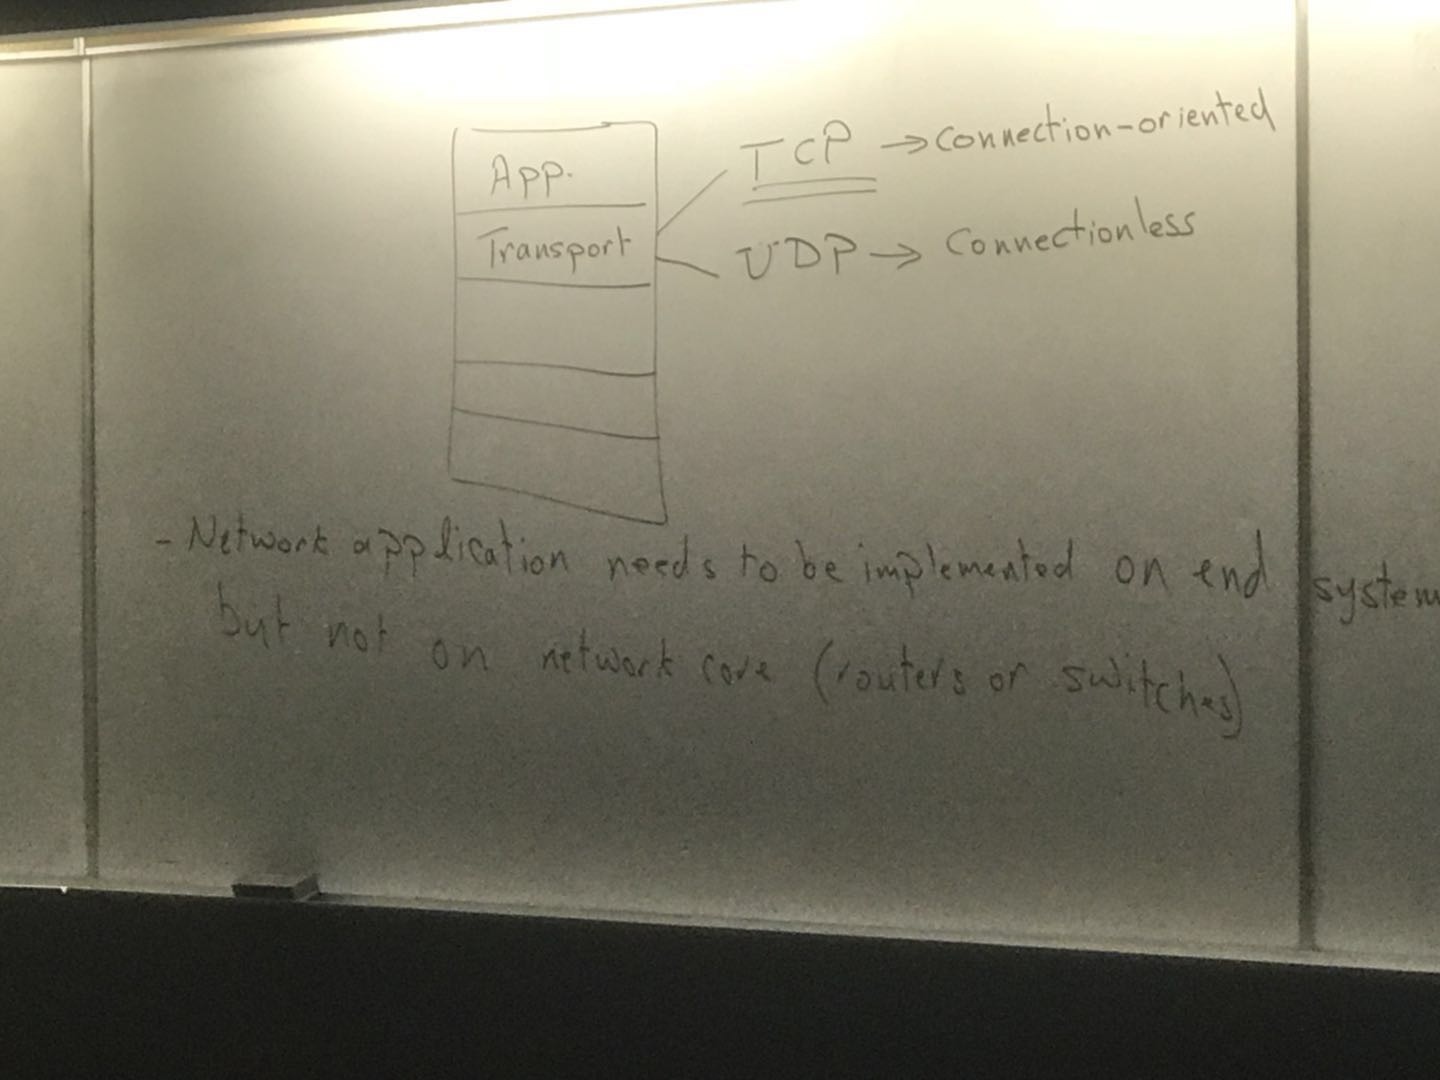 App.
Transport
TCP → Connection-oriented
UDP → Connectionless
- Network application needs to be implemented on end system
but not on network core (routers or switches)